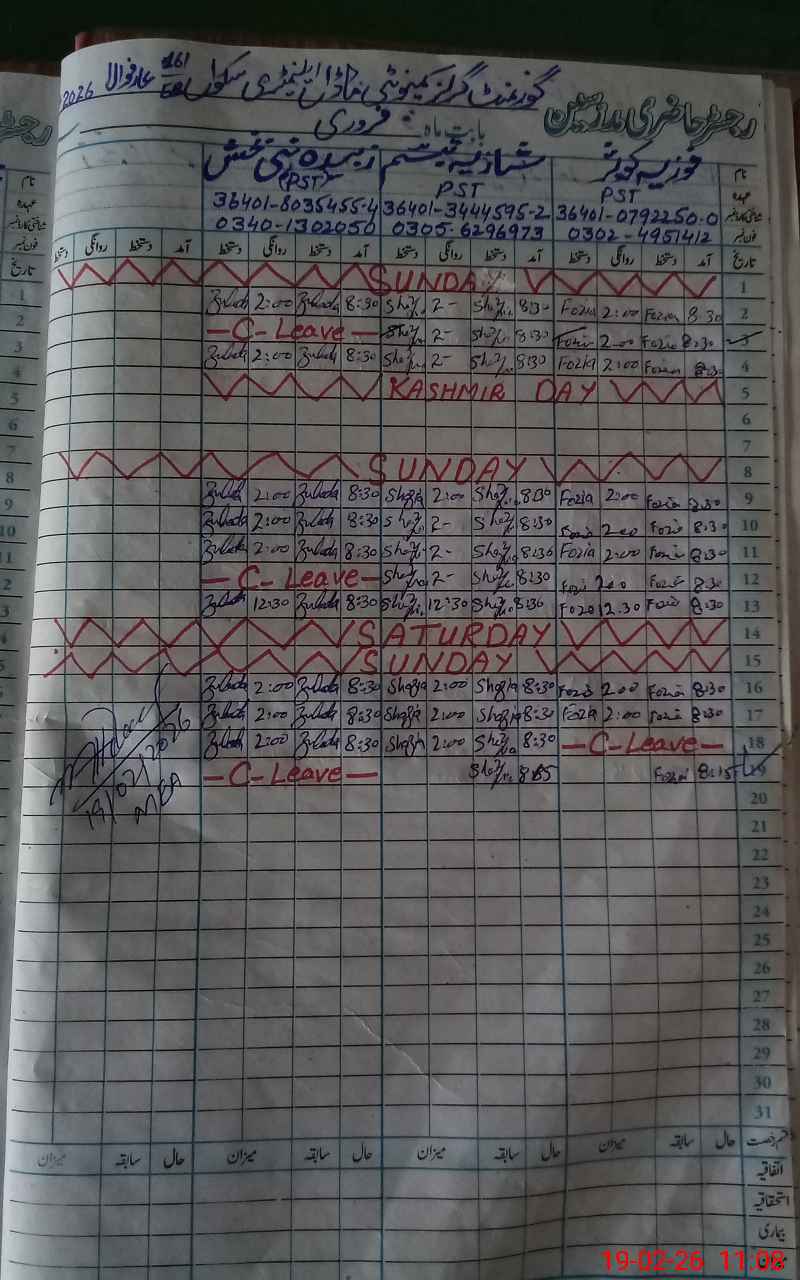 رجسٹر حاضری مدرسین گورنمنٹ گرلز کمیونٹی ماڈل ایلیمنٹری سکول 161/EB عارفوالا 2026
بابت ماہ: فروری
نام فوزیہ کوثر شازیہ تبسم زبیدہ نبی بخش
عہدہ PST PST (PST)
شناختی کارڈ نمبر 36401-0792250-0 36401-3444595-2 36401-8035455-4
فون نمبر 0302-4951412 0305-6296973 0340-1302050
تاریخ آمد دستخط روانگی دستخط آمد دستخط روانگی دستخط آمد دستخط روانگی دستخط آمد دستخط روانگی دستخط
1 SUNDAY
2 8:30 Fozia 2:00 Fozia 8:30 2- 8:30 2:00
3 8:30 Fozia 2:00 Fozia 8:30 2- C-Leave
4 8:30 Fozia 2:00 Fozia 8:30 2- 8:30 2:00
5 KASHMIR DAY
6
7
8 SUNDAY
9 8:30 Fozia 2:00 Fozia 8:30 2:00 8:30 2:00
10 8:30 Fozia 2:00 Fozia 8:30 2- 8:30 2:00
11 8:30 Fozia 2:00 Fozia 8:30 2- 8:30 2:00
12 8:30 Fozia 2:00 Fozia 8:30 2- C-Leave
13 8:30 Fozia 12:30 Fozia 8:30 12:30 8:30 12:30
14 SATURDAY
15 SUNDAY
16 8:30 Fozia 2:00 Fozia 8:30 2:00 8:30 2:00
17 8:30 Fozia 2:00 Fozia 8:30 2:00 8:30 2:00
18 C-Leave 8:30 2:00 8:30 2:00
19 8:15 Fozia C-Leave
19/02/2026
MEA
20
21
22
23
24
25
26
27
28
29
30
31
قسم رخصت حال سابقہ میزان حال سابقہ میزان حال سابقہ میزان حال سابقہ میزان
اتفاقیہ
استحقاقیہ
بیماری
19-02-26 11:08